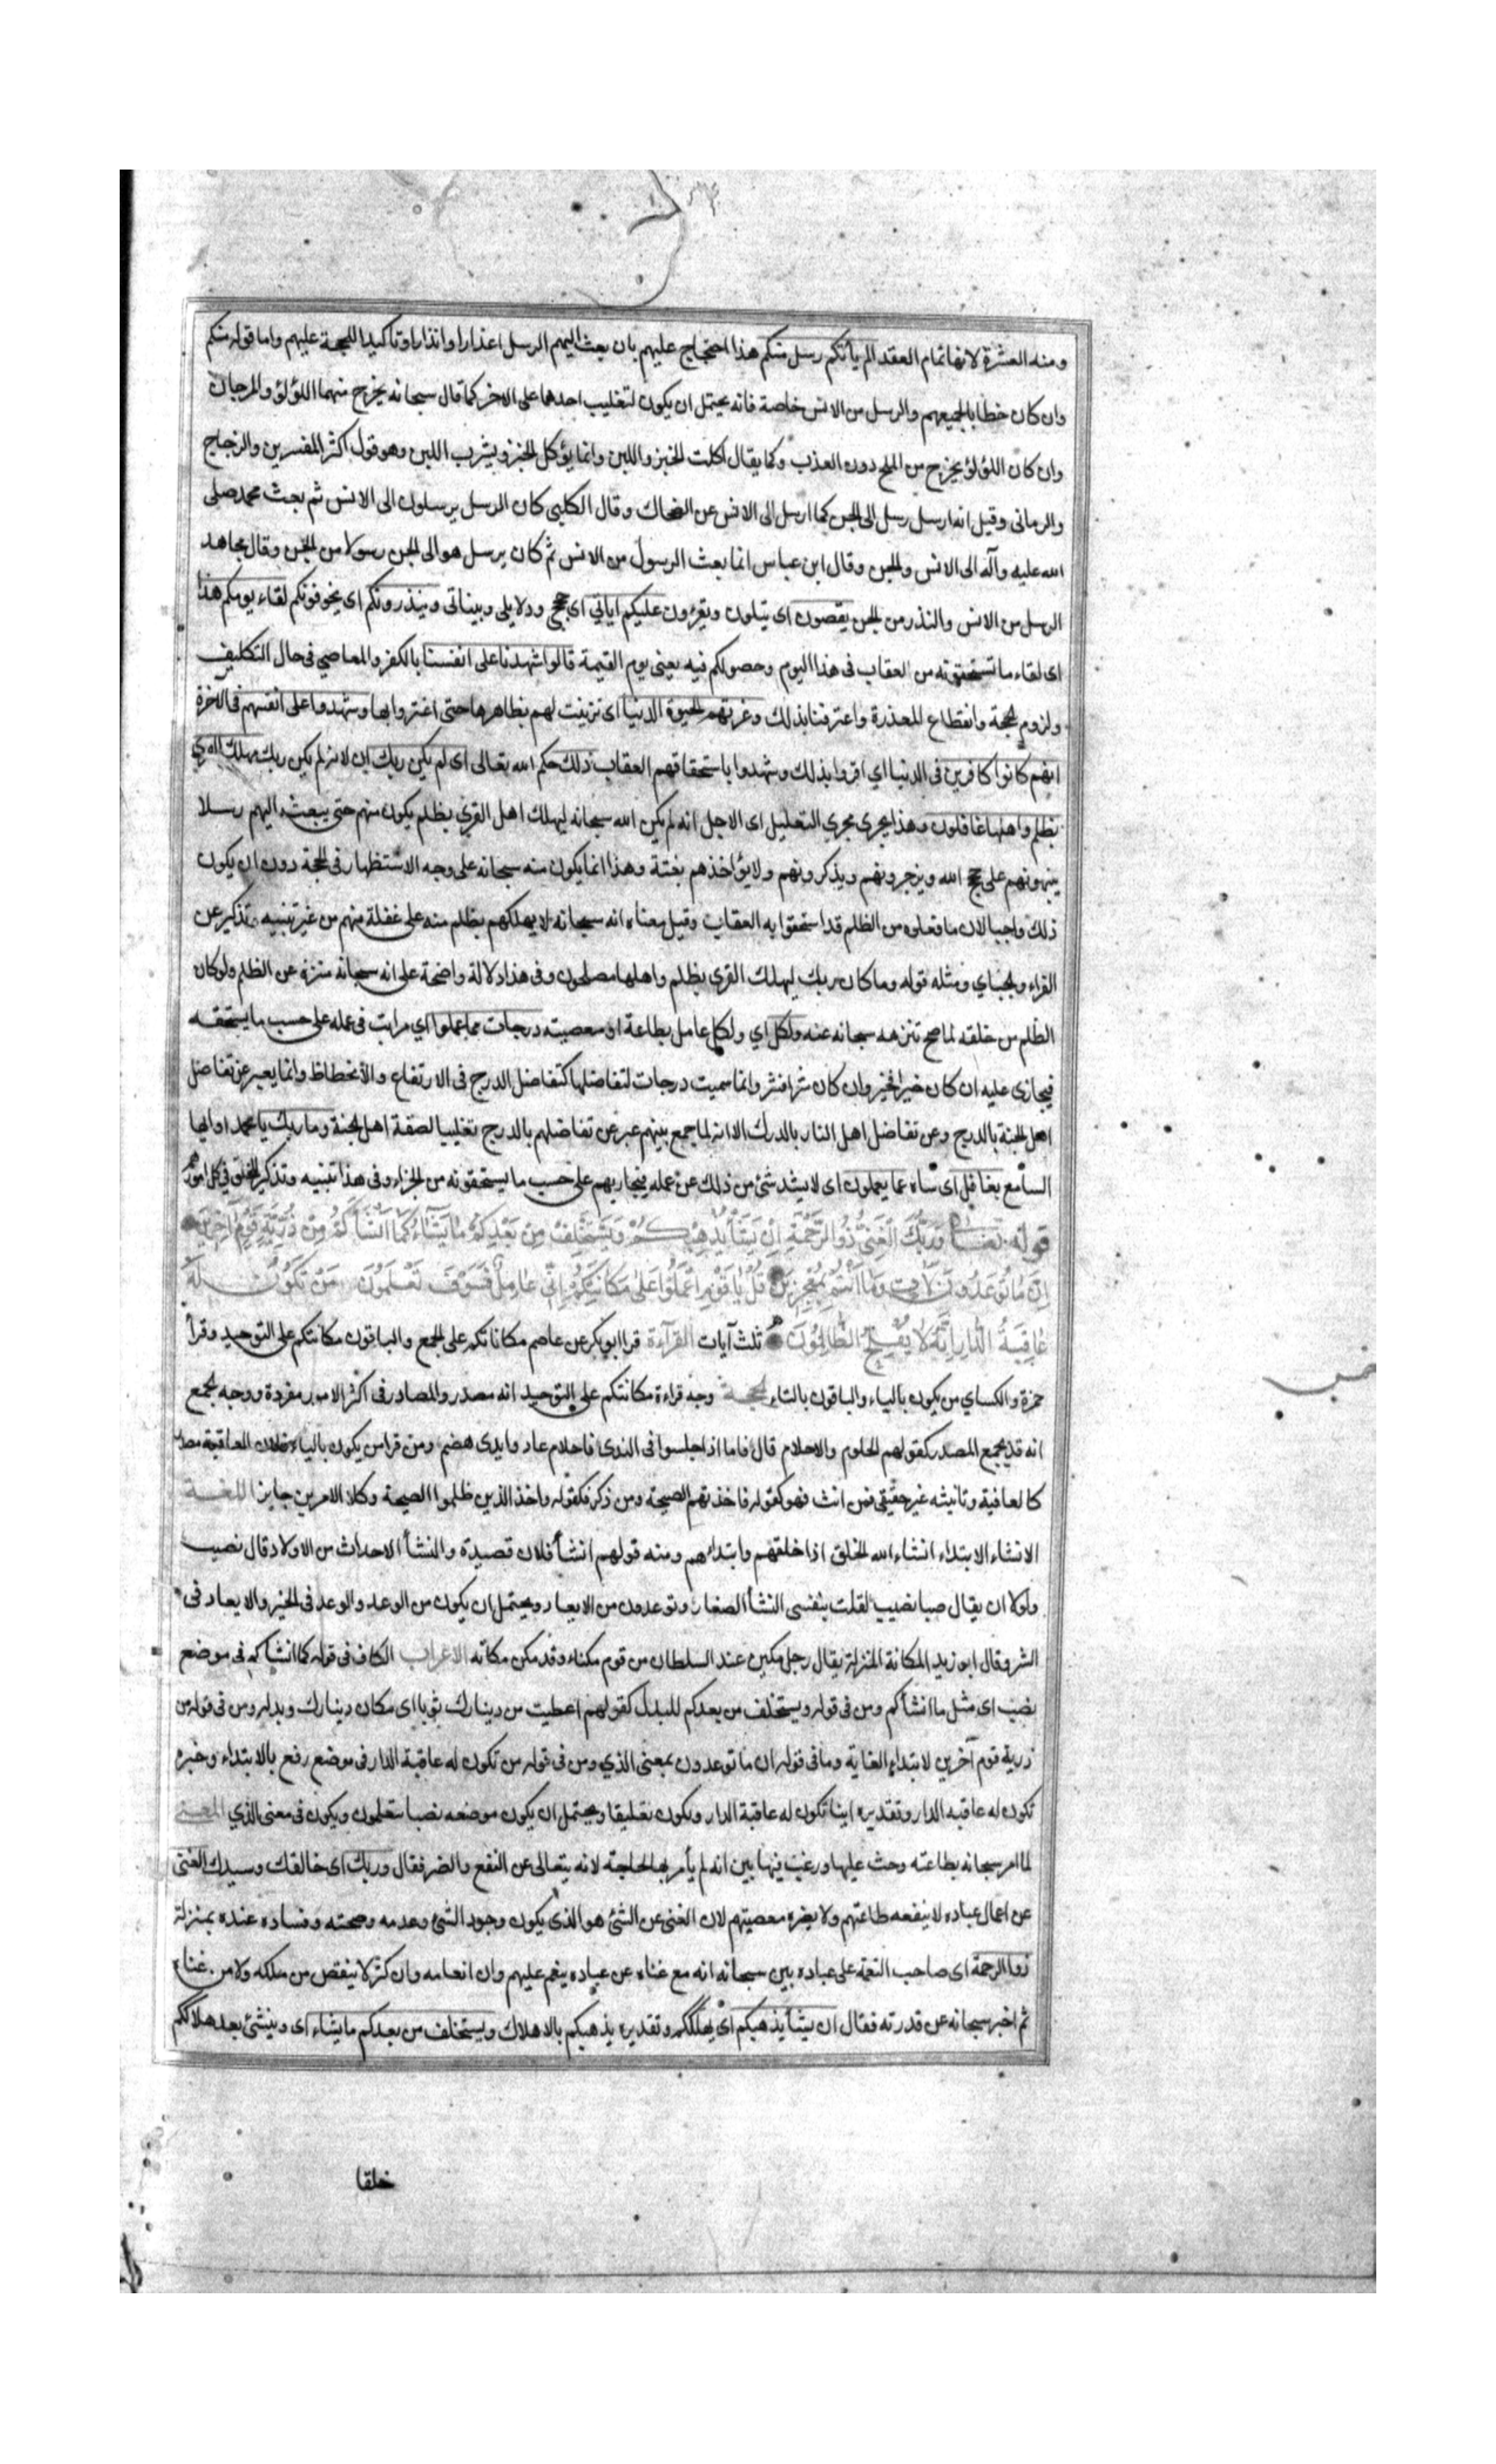 ومنه العشرة لانها تمام العقد الم يأتكم رسل منكم هذا احتجاج عليهم بان بعث اليهم الرسل اعذارا وانذارا وتأكيدا للحجة عليهم واما قوله منكم
وان كان خطابا لجميعهم والرسل من الانس خاصة فانه يحتمل ان يكون لتغليب احدهما على الاخر كما قال سبحانه يخرج منهما اللؤلؤ والمرجان
وان كان اللؤلؤ يخرج من الملح دون العذب وكما يقال اكلت الخبز واللبن وانما يؤكل الخبز ويشرب اللبن وهو قول اكثر المفسرين والزجاج
والرمانى وقيل انه ارسل رسل الى الجن كما ارسل الى الانس عن الضحاك وقال الكلبى كان الرسل يرسلون الى الانس ثم بعث محمد صلى
الله عليه وآله الى الانس والجن وقال ابن عباس انما بعث الرسول من الانس ثم كان يرسل هو الى الجن رسولا من الجن وقال مجاهد
الرسل من الانس والنذر من الجن يقصون اى يتلون ويقرؤن عليكم اياتي اى حججى ودلايلى وبيناتى وينذرونكم اى يخوفونكم لقاء يومكم هذا
اى لقاء ما تستحقونه من العقاب فى هذا اليوم وحصولكم فيه يعنى يوم القيمة قالوا شهدنا على انفسنا بالكفر والمعاصي فى حال التكليف
ولزوم الحجة وانقطاع المعذرة واعترفنا بذلك وغرتهم الحيوة الدنيا اى تزينت لهم بظاهرها حتى اغتروا بها وشهدوا على انفسهم فى الاخرة
انهم كانوا كافرين فى الدنيا اي اقروا بذلك وشهدوا باستحقاقهم العقاب ذلك حكم الله تعالى اى لم يكن ربك ان لانه لم يكن ربك مهلك القرى
بظلم واهلها غافلون وهذا يجرى مجري التعليل اى الاجل انه لم يكن الله سبحانه ليهلك اهل القرى بظلم يكون منهم حتى يبعث اليهم رسلا
ينبهونهم على حجج الله ويزجرونهم ويذكرونهم ولا يؤاخذهم بغتة وهذا انما يكون منه سبحانه على وجه الاستظهار فى الحجة دون ان يكون
ذلك واجبا لان ما فعلوه من الظلم قد استحقوا به العقاب وقيل معناه انه سبحانه لا يهلكهم بظلم منه على غفلة منهم من غير تنبيه وتذكير عن
القراء والجباي ومثله قوله وما كان ربك ليهلك القرى بظلم واهلها مصلحون وفى هذا دلالة واضحة على انه سبحانه منزه عن الظلم ولو كان
الظلم من خلقه لما صح تنزهه سبحانه عنه ولكل اي ولكل عامل بطاعة او معصيته درجات مما عملوا اي مراتب فى عمله على حسب ما يستحقه
فيجازى عليه ان كان خيرا فخير وان كان شرا فشر وانما سميت درجات لتفاضلها كتفاضل الدرج فى الارتفاع والأنحطاط وانما يعبر عن تفاضل
اهل الجنة بالدرج وعن تفاضل اهل النار بالدرك الا انه لما جمع بينهم عبر عن تفاضلهم بالدرج تغليبا لصفة اهل الجنة وما ربك يا محمد او ايها
السامع بغافل اى ساه عما يعملون اى لا يشد شئ من ذلك عن عمله فيجازيهم على حسب ما يستحقونه من الجزاء وفى هذا تنبيه وتذكير للخلق فى كل امورهم
قوله تعالى وَرَبُّكَ الْغَنِيُّ ذُو الرَّحْمَةِ اِنْ يَشَأْ يُذْهِبْكُمْ وَيَسْتَخْلِفْ مِنْ بَعْدِكُمْ مَا يَشَاءُ كَمَا اَنْشَأَكُمْ مِنْ ذُرِّيَّةِ قَوْمٍ آخَرِينَ
اِنَّ مَا تُوعَدُونَ لَآتٍ وَمَا اَنْتُمْ بِمُعْجِزِينَ قُلْ يَا قَوْمِ اعْمَلُوا عَلَى مَكَانَتِكُمْ اِنِّي عَامِلٌ فَسَوْفَ تَعْلَمُونَ مَنْ تَكُونُ لَهُ
عَاقِبَةُ الدَّارِ اِنَّهُ لَا يُفْلِحُ الظَّالِمُونَ ثلث آيات القرآءة قرا ابو بكر عن عاصم مكاناتكم على الجمع والباقون مكانتكم على التوحيد وقرأ
حمزة والكساي من يكون بالياء والباقون بالتاء الحجة وجه قراءة مكانتكم على التوحيد انه مصدر والمصادر فى اكثر الامر مفردة ووجه الجمع
انه قد يجمع المصدر كقولهم الحلوم والاحلام قال فاما اذا جلسوا فى الندى فاحلام عاد وايدى هضم ومن قرا من يكون بالياء فلان العاقبة مصدر
كالعافية وتأنيثه غير حقيقى فمن انث فهو كقوله فاخذتهم الصيحة ومن ذكر فكقوله واخذ الذين ظلموا الصيحة وكلا الامرين جايز اللغة
الانشاء الابتداء انشاء الله الخلق اذا خلقهم وابتداهم ومنه قولهم انشأ فلان قصيدة والنشأ الاحداث من الاولاد قال نصيب
ولولا ان يقال صبا نصيب لقلت بنفسى النشأ الصغار وتوعدون من الايعاد ويحتمل ان يكون من الوعد والوعد فى الخير والايعاد فى
الشر وقال ابو زيد المكانة المنزلة يقال رجل مكين عند السلطان من قوم مكناء وقد مكن مكانه الاعراب الكاف فى قوله كما انشاكم فى موضع
نصب اى مثل ما انشأكم ومن فى قوله ويستخلف من بعدكم للبدل كقولهم اعطيت من دينارك ثوبا اى مكان دينارك وبدله ومن فى قوله من
ذرية قوم آخرين لابتداء الغاية وما فى قوله ان ما توعدون بمعنى الذي ومن فى قوله من تكون له عاقبة الدار فى موضع رفع بالابتداء وخبره
تكون له عاقبه الدار وتقديره اينا تكون له عاقبة الدار ويكون تعليقا ويحتمل ان يكون موضعه نصبا بتعلمون ويكون فى معنى الذي المعنى
لما امر سبحانه بطاعته وحث عليها ورغب فيها بين انه لم يأمر بها لحاجة لانه يتعالى عن النفع والضر فقال وربك اى خالقك وسيدك الغنى
عن اعمال عباده لا ينفعه طاعتهم ولا يضره معصيتهم لان الغنى عن الشئ هو الذى يكون وجود الشئ وعدمه وصحته وفساده عنده بمنزلة
ذو الرحمة اى صاحب النعمة على عباده بين سبحانه انه مع غناه عن عباده ينعم عليهم وان انعامه وان كثر لا ينقص من ملكه ولا من غناه
ثم اخبر سبحانه عن قدرته فقال ان يشأ يذهبكم اى يهلككم وتقديره يذهبكم بالاهلاك ويستخلف من بعدكم ما يشاء اى وينشئ بعد هلاككم
خلقا